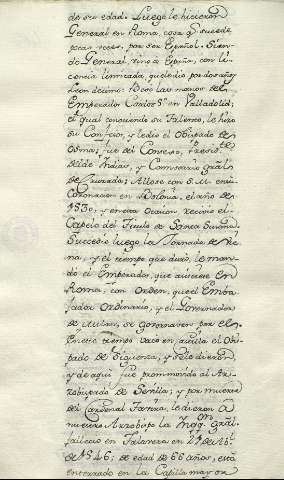 de su edad. Luego le hicieron
General en Roma, cosa q̃ sucede
pocas veces, por ser Español. Sien-
do General, vino à España, con li-
cencia limitada, que le dio por dos años
Leon decimo. Besò las manos del
Emperador Carlos 5º en Valladolid;
el qual conociendo su talento, le hizo
su Confesor, y le dio el Obispado de
Osma; fue del Consejo, Presid.te
de Indias, y Comisario gral
de Cruzada; Allose con S.M. en su
Coronacion en Bolonia, el año de
1530, y en esta ocasion recivio el
Capelo del Titulo de Santa Susana.
Succedio luego la Jornada de Vie-
na, y el tiempo que durò, le man-
dò el Emperador, que asistiese en
Roma, con orden, que el Emba-
jador ordinario, y el Governador
de Milan, se governasen por el. En
este tiempo vaco en Castilla el Obis-
pado de Siguenza, y se le dieron,
y de aqui fue promovido al Ar-
zobispado de Sevilla; y por muerte
del Cardenal Tavera, le dieron à
nuestro Arzobispo la Inqq.on gral.
fallecio en Talavera en 22 de
de 1546; de edad de 66 años, està
enterrado en la Capilla mayor